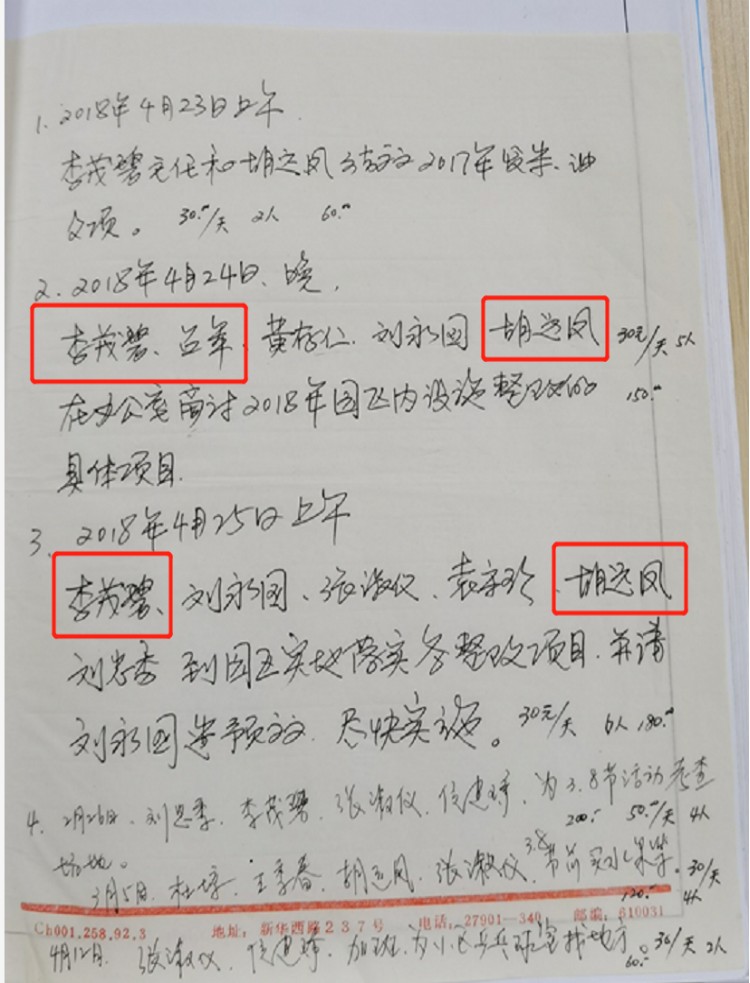 1. 2018年4月23日上午
李茂碧主任和胡远凤结算2017年度米、油
款项。 30.00/天 2人 60.00
2. 2018年4月24日、晚,
李茂碧、吕军、黄存仁、刘永国 胡远凤 30元/天 5人
在办公室商讨2018年园区内设施整改的 150.00
具体项目.
3、2018年4月25日上午
李茂碧、刘永国、张淑仪、袁宗珍、胡远凤
刘忠季 到园区实地落实各整改项目.并请
刘永国造预算.尽快实施。 30元/天 6人 180.00
4. 2月26日、刘忠季、李茂碧、张淑仪、信建婷、为3.8节活动考查
场地。 200.00 50.00/天 4人
3月5日、杜婷、王季春、胡远凤、张淑仪、3.8节前买水果等。 30/天
120.00 4人
Ch001.258.92.3 地址: 新华西路237号 电话: 27901-340 邮编: 610031
4月12日、张淑仪、信建婷、加班为小区乒乓球室找地方。 30/天 2人
60.00